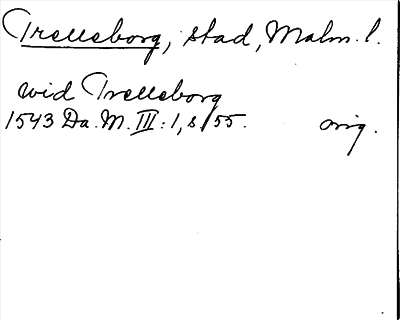 Trelleborg, stad, Malm. l.
wid Trelleborg
1543 Da. M. III: 1, s 55. orig.